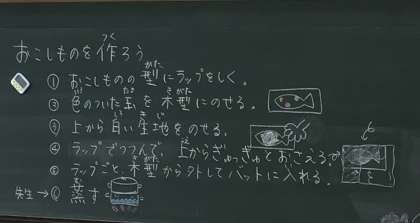 おこしものを作ろう
① おこしものの型にラップをしく。
② 色のついた玉を木型にのせる。
③ 上から白い生地をのせる。
④ ラップでつつんで、上からぎゅっぎゅとおさえる。
⑤ ラップごと、木型から外してバットに入れる。
先生→⑥ 蒸す